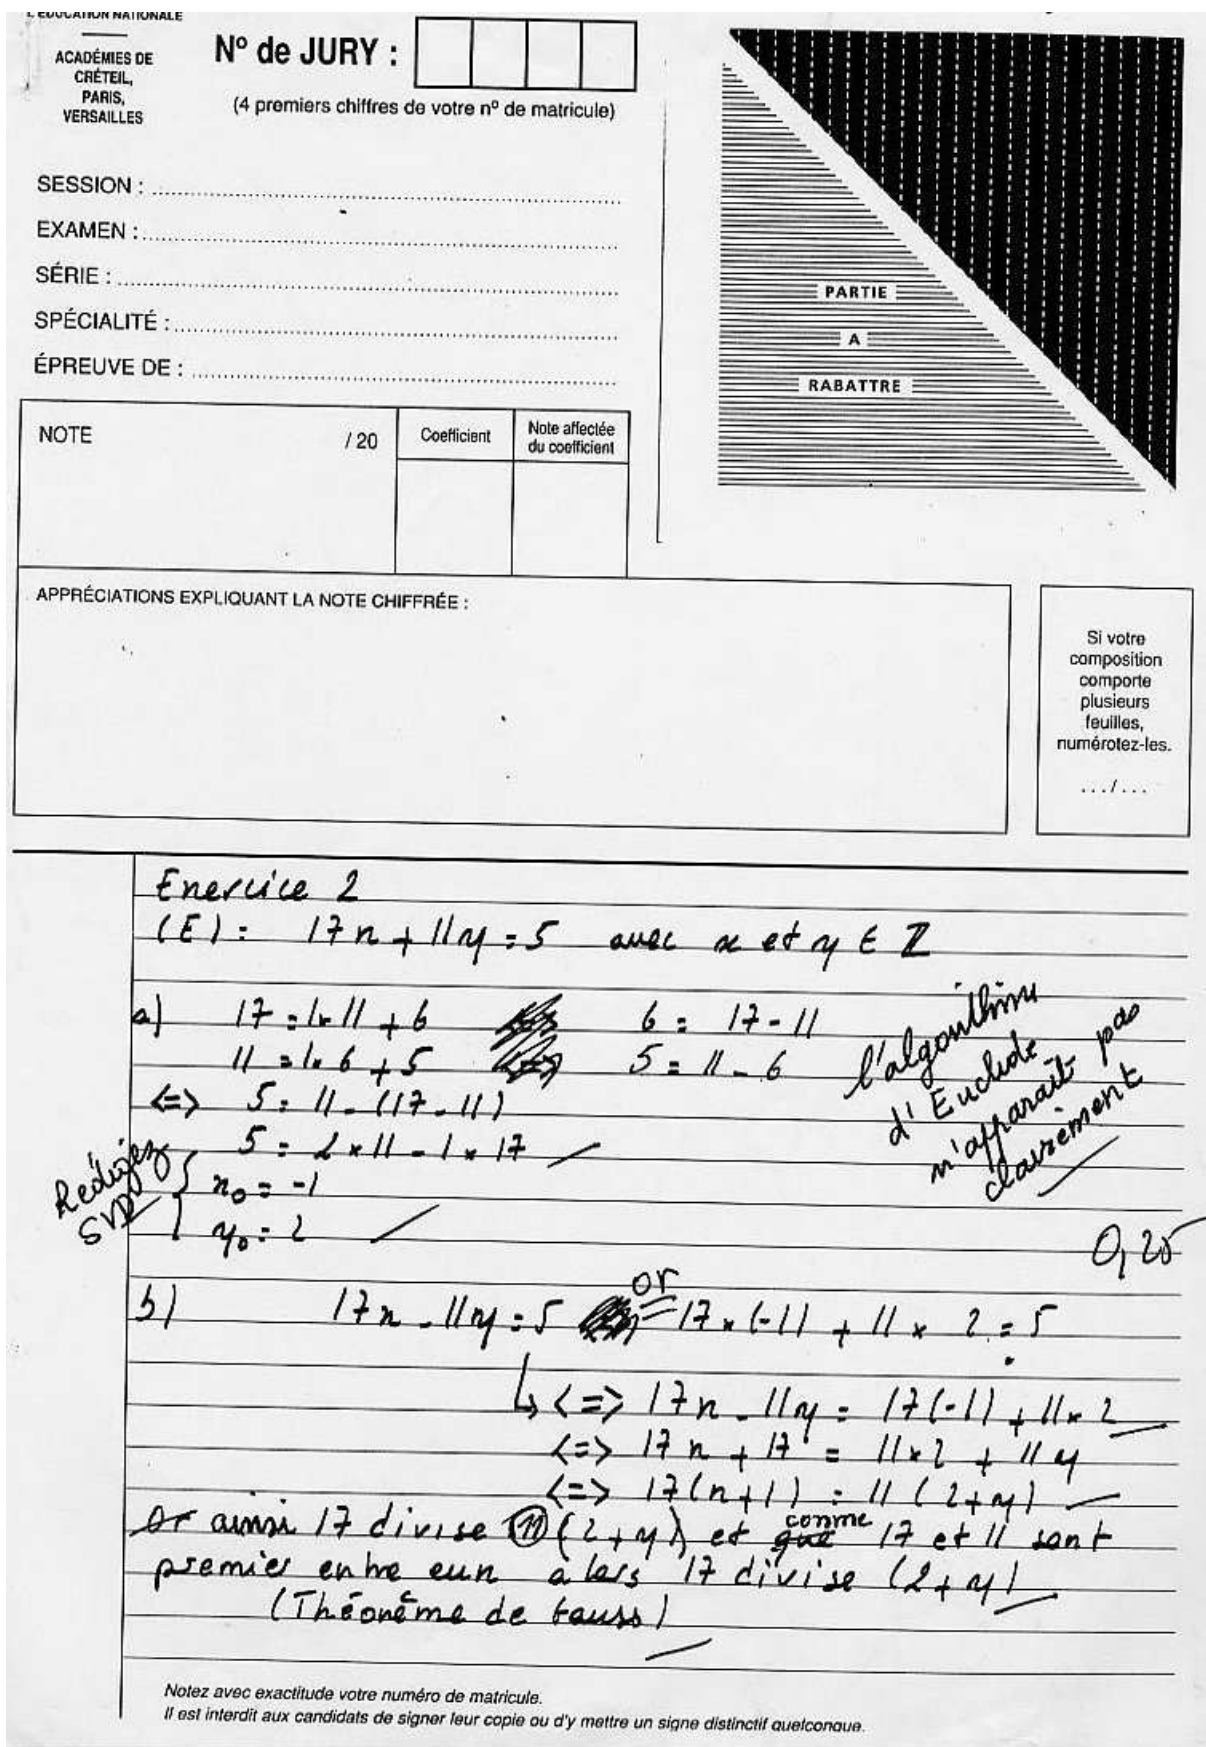 L'ÉDUCATION NATIONALE
ACADÉMIES DE
CRÉTEIL,
PARIS,
VERSAILLES
Nº de JURY :
(4 premiers chiffres de votre nº de matricule)
SESSION :
EXAMEN :
SÉRIE :
SPÉCIALITÉ :
ÉPREUVE DE :
PARTIE
A
RABATTRE
NOTE / 20
Coefficient
Note affectée
du coefficient
APPRÉCIATIONS EXPLIQUANT LA NOTE CHIFFRÉE :
Si votre
composition
comporte
plusieurs
feuilles,
numérotez-les.
.../...
Exercice 2
(E) : 17x + 11y = 5 avec x et y ∈ Z
a) 17 = 1×11 + 6 6 = 17 - 11
11 = 1×6 + 5 5 = 11 - 6
<=> 5 = 11 - (17 - 11)
5 = 2 × 11 - 1 × 17
x0 = -1
y0 = 2
l'algorithme
d'Euclide
n'apparaît pas
clairement
Rédigez
SVP
0,25
b) 17x - 11y = 5 or 17×(-1) + 11 × 2 = 5
<=> 17x - 11y = 17(-1) + 11×2
<=> 17x + 17 = 11×2 + 11y
<=> 17(x+1) = 11(2+y)
Or ainsi 17 divise 11 (2+y) et que comme 17 et 11 sont
premier entre eux alors 17 divise (2+y)
(Théorème de Gauss)
Notez avec exactitude votre numéro de matricule.
Il est interdit aux candidats de signer leur copie ou d'y mettre un signe distinctif quelconque.